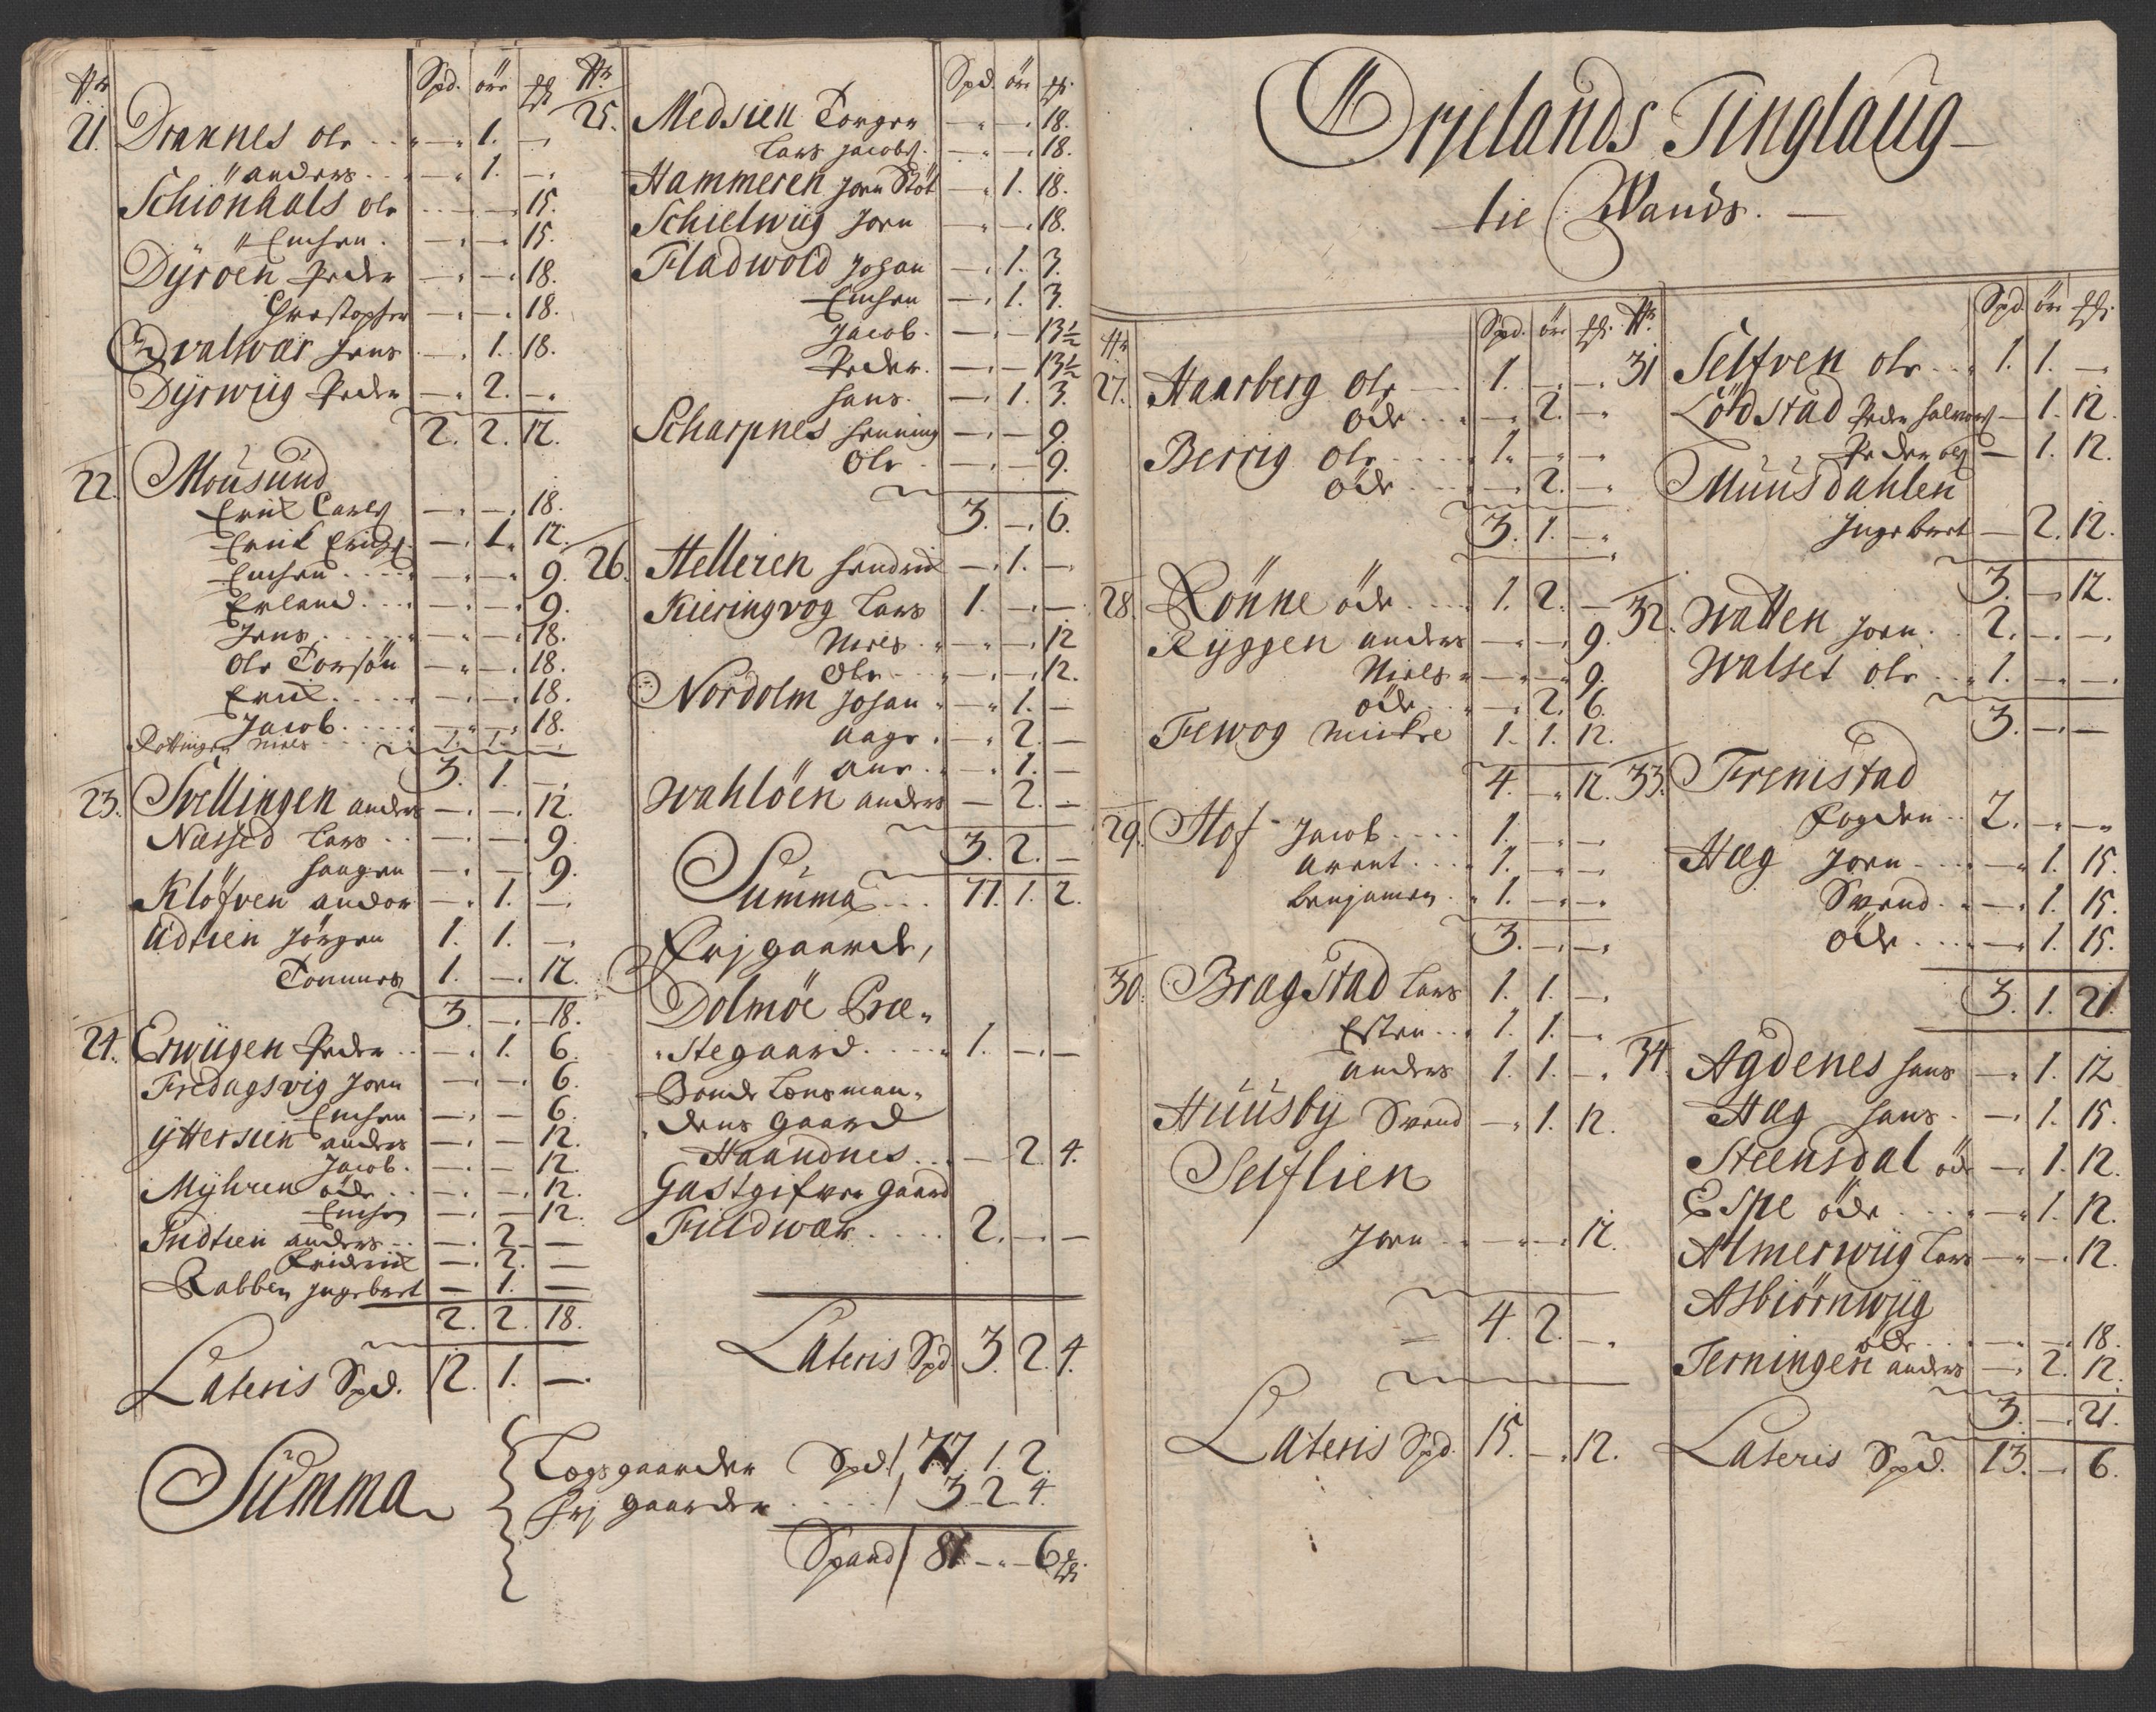 No Spd. öre
21. Drannes ole .. " — " 1. —
" anders .. — " 1. —
Schiönhals ole .. — — 15.
" Einchen . — . — 15.
Dÿröen Peder — . — . 18.
Christopher — . — . 18.
Dvalwær Jens — . 1. 18.
Dÿrwiig Peder — . 2. — .
2. 2. 12.
22. Mousund
Erick Carls — . — . 18.
Erick Erichs. — . 1. 12.
Einchen .... — . — 9.
Erland ... — . — . 9.
Jens ..... — . — . 18.
Ole Torsön — . — . 18.
Erick .... — . — . 18.
Jacob .... — . — . 18.
Niels .... 1. 1. —
3. 1. — .
23. Svellingen anders — . — . 12.
Nasset Lars .. — . — . 9.
Haagen — . — 9.
Klöfven andor — . 1. — .
Udtien Jörgen 1. 1. — .
Tommes 1. — . 12.
3. — . 18.
24. Erwiigen Peder .. — . 1. 6.
Fredagsvig Jorn — . — . 6.
Einchen — . — 6.
Ÿttersien anders — . — 12.
Jacob . — . — 12.
Mÿhren öde .. — . — . 12.
Einchen — . — 12.
Indtien anders .. — . 2. —
Friderick — . 2. —
Rabben Ingebret — 1. —
2. 2. 18.
Lateris Spd. 12. 1. — .
No Spd. öre
25. Medsien Torger — " — . 18.
Lars Jacobs. — " — . 18.
Hammeren Jorn Stöt — " 1. 18.
Schielwiig Jorn — " — . 18.
Fladwold Johan — . 1. 3.
Einchen — . 1. 3.
Jacob . — . — 13½
Peder . — . — 13½
Hans . — . 1. 3.
Scharpnes Henning — . — 9.
Ole . — . — 9.
3. — . 6.
26. Helleren Hendrick — . 1. —
Kieringvog Lars 1. — . —
Niels . " — " — . 12
Ole ... — . — . 12.
Nordolm Johan " — " 1. —
Aage . " — " 2. —
Ane . " — . 1. —
Wahlöen anders — 2. —
3. 2. —
Summa ... 77. 1. 2.
Frj gaarde,
Dolmöe Præ-
stegaard .... " 1. — . —
Bonde Lensman-
dens Gaard
Haandnes ... — 2. 4.
Gastgifver Gaard
Fieldwær .... 2. — . —
Lateris Spd 3. 2. 4.
Summa
Legs gaarder Spd. 77. 1. 2.
frj gaarder .... 3. 2. 4.
Spand 81 — " — 6
Ørjelands Tinglaug —
tie Wands. —
No Spd. öre
27. Haarberg Ole — 1. — . —
öde ... — . 2. —
Berrig Ole .... 1. — . —
öde ... — . 2. — .
3. 1. — .
28. Rönne öde .... 1. 2. —
Rÿggen anders — " — . 9.
Niels " — " — . 9.
öde .. " — . 2. 6.
Fewog mickel 1. 1. 12.
4. — . 12.
29. Hof Jacob .... 1. — . —
Arent ... 1. — . —
Benjamin . " 1. — . —
3. — . — .
30. Bragstad Lars 1. 1. — .
Esten ... 1. 1. — .
anders 1. 1. — .
Huusbÿ Svend — . 1. 12.
Selflien
Jorn . " — " — . 12.
4. 2. — .
Lateris Spd. 15. — . 12.
No Spd. öre
31 Selfven ole ... 1. 1. — .
Lödstad Peder Halvors — 1. 12.
Peder ols — 1. 12.
Muusdahlen
Ingebret — 2. 12.
3. — . 12.
32. Watten Jorn .. 2. — . — .
Walset ole ... 1. — . — .
3. — . —
33. Fremstad
Fogden .. 2. — . — "
Hæg Jorn ... — " 1. 15.
Svend . " — . 1. 15.
öde ... — . 1. 15.
3. 1. 21.
34. Agdenes Hans — . 1. 12
Hæg Hans . — . 1. 15.
Steensdal öde — . 1. 12.
Espe öde ... — " 1. 12.
Almerwiig Lars — " — . 12.
Asbiörnwiig
öde ... — . — . 18.
Terningen anders — . 2. 12.
3. — . 21.
Lateris Spd. 13. — . 6.